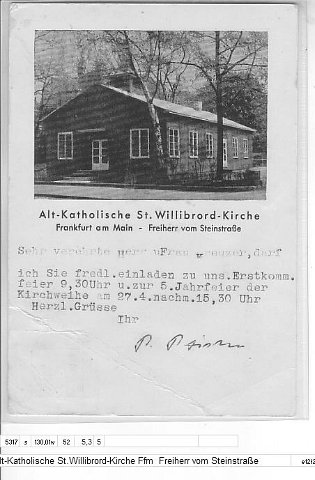 Alt-Katholische St. Willibrord-Kirche
Frankfurt am Main - Freiherr vom Steinstraße
Sehr verehrte Herr uFrau Kreuzer,darf
ich Sie fredl.einladen zu uns.Erstkomm.
feier 9,30Uhr u.zur 5.Jahrfeier der
Kirchweihe am 27.4.nachm.15,30 Uhr
Herzl.Grüsse
Ihr
5317 s 130,01w 52 5,3 5
lt-Katholische St.Willibrord-Kirche Ffm Freiherr vom Steinstraße